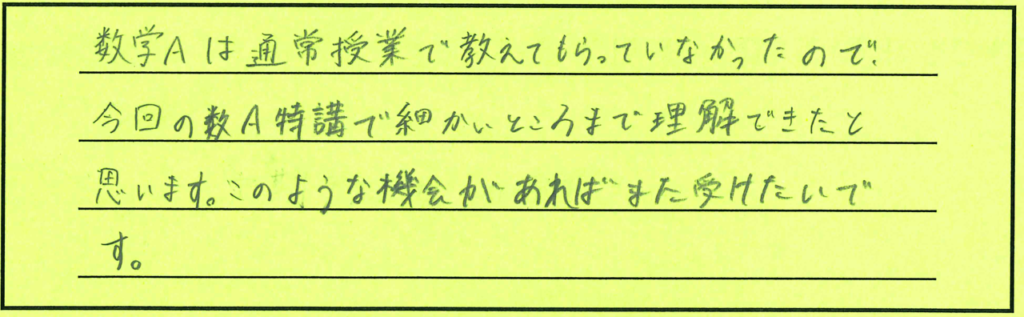 数学Aは通常授業で教えてもらっていなかったので、
今回の数A特講で細かいところまで理解できたと
思います。このような機会があればまた受けたいで
す。